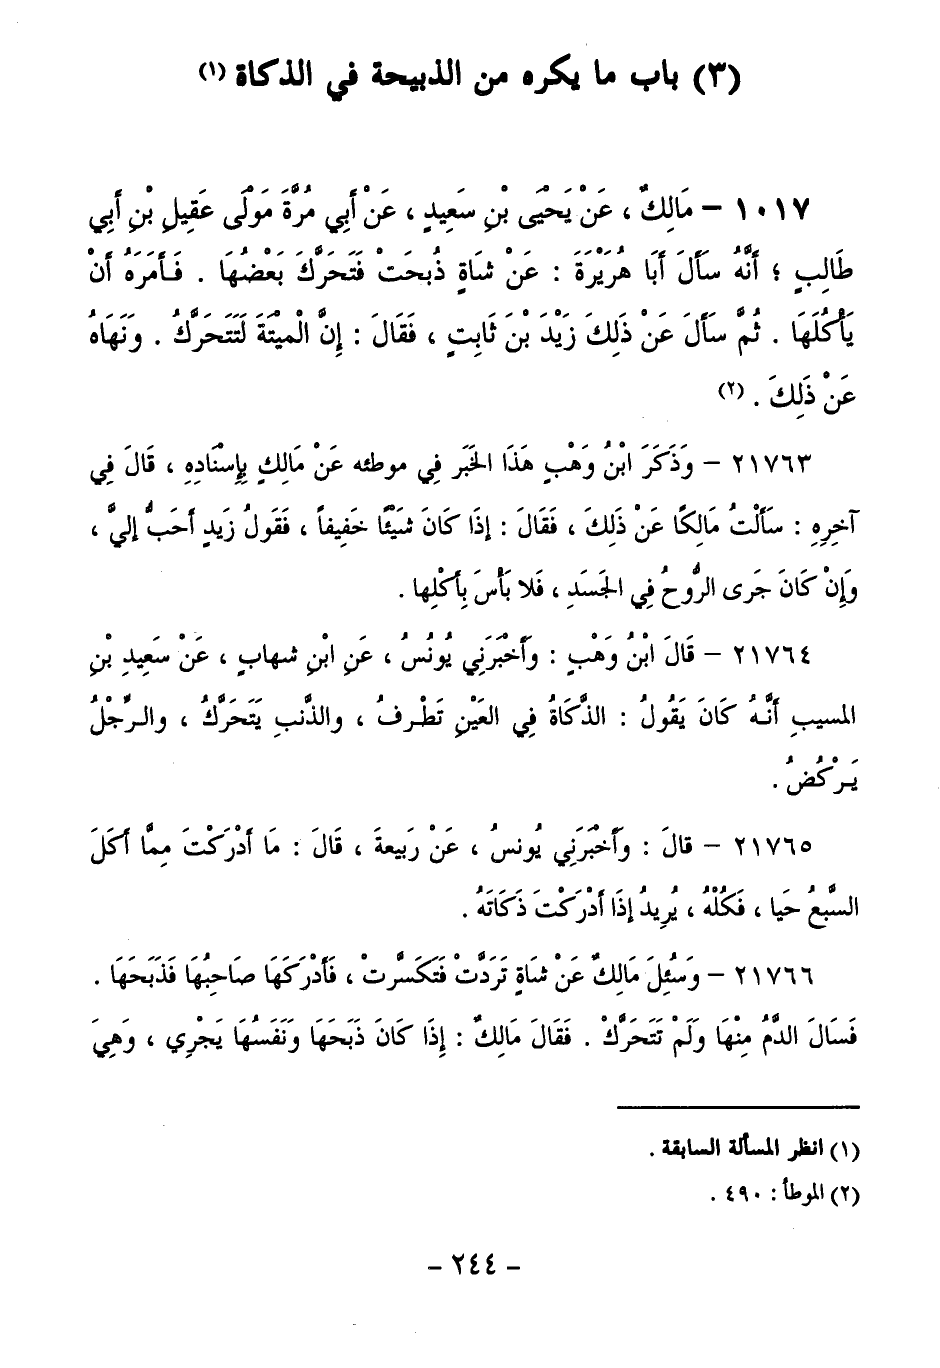 (٣) باب ما يكره من الذبيحة في الذكاة (١)
١٠١٧ – مَالِكٌ ، عَنْ يَحْيَى بْنِ سَعِيدٍ ، عَنْ أَبِي مُرَّةَ مَوْلَى عَقِيلِ بْنِ أَبِي
طَالِبٍ ؛ أَنَّهُ سَأَلَ أَبَا هُرَيْرَةَ : عَنْ شَاةٍ ذُبِحَتْ فَتَحَرَّكَ بَعْضُهَا . فَأَمَرَهُ أَنْ
يَأْكُلَهَا . ثُمَّ سَأَلَ عَنْ ذَلِكَ زَيْدَ بْنَ ثَابِتٍ ، فَقَالَ : إِنَّ الْمَيْتَةَ لَتَتَحَرَّكُ . وَنَهَاهُ
عَنْ ذَلِكَ . (٢)
٢١٧٦٣ – وَذَكَرَ ابْنُ وَهْبٍ هَذَا الخَبَر فِي موطئه عَنْ مَالِكٍ بِإِسْنَادِهِ ، قَالَ فِي
آخِرِهِ : سَأَلْتُ مَالِكًا عَنْ ذَلِكَ ، فَقَالَ : إِذَا كَانَ شَيْئًا خَفِيفاً ، فَقَولُ زَيدٍ أَحَبُّ إِليَّ ،
وَإِنْ كَانَ جَرى الرُّوحُ فِي الجَسَدِ ، فَلا بَأْسَ بِأَكْلِها .
٢١٧٦٤ – قَالَ ابْنُ وَهْبٍ : وَأَخْبَرَنِي يُونُسُ ، عَنِ ابْنِ شهابٍ ، عَنْ سَعِيدِ بْنِ
المسيبِ أَنَّهُ كَانَ يَقُولُ : الذَّكَاةُ فِي العَيْنِ تَطْرفُ ، والذَّنبِ يَتَحَرَّكُ ، والرِّجْلُ
يَرْكُضُ .
٢١٧٦٥ – قالَ : وَأَخْبَرَنِي يُونسُ ، عَنْ رَبِيعةَ ، قَالَ : مَا أَدْرَكْتَ مِمَّا أَكَلَ
السَّبعُ حَيا ، فَكُلْهُ ، يُرِيدُ إِذَا أَدْرَكْتَ ذَكَاتَهُ .
٢١٧٦٦ – وَسُئِلَ مَالِكٌ عَنْ شَاةٍ تَرَدَّتْ فَتَكَسَّرتْ ، فَأَدْرَكَهَا صَاحِبُهَا فَذَبَحَهَا .
فَسَالَ الدَّمُ مِنْهَا وَلَمْ تَتَحَرَّكْ . فَقَالَ مَالِكٌ : إِذَا كَانَ ذَبَحَهَا وَنَفَسُهَا يَجْرِي ، وَهِيَ
(١) انظر المسألة السابقة .
(٢) الموطأ : ٤٩٠ .
– ٢٤٤ –